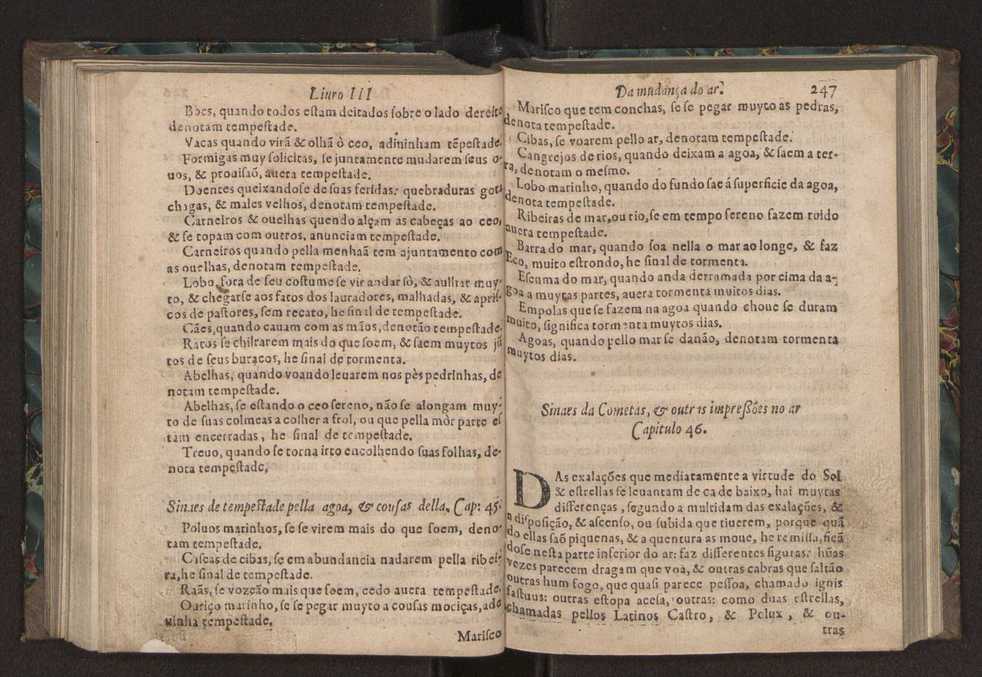 Liuro III
Bões, quando todos estam deitados sobre o lado dereito
denotam tempestade.
Vacas quando virã & olhã ò ceo, adininham tẽpestade.
Formigas muy solicitas, se juntamente mudarem seus o-
uos, & prouisaõ, auera tempestade.
Doentes queixandose de suas feridas: quebraduras gota
chagas, & males velhos, denotam tempestade.
Carneiros & ouelhas quendo alçam as cabeças ao ceo,
& se topam com outros, anunciam tempestade.
Carneiros quando pella menhaã tem ajuntamento com
as ouelhas, denotam tempestade.
Lobo, fora de seu costume se vir andar sò, & aulliar muy-
to, & chegarse aos fatos dos lauradores, malhadas, & apris-
cos de pastores, sem recato, he sinal de tempestade.
Cães, quando cauam com as mãos, denotão tempestade.
Ratos se chiltarem mais do que soem, & saem muytos jũ
tos de seus buracos, he sinal de tormenta.
Abelhas, quando voando leuarem nos pès pedrinhas, de
notam tempestade.
Abelhas, se estando o ceo sereno, não se alongam muy-
to de suas colmeas a colher a frol, ou que pella mòr parte es
tam encerradas, he sinal de tempestade.
Treuo, quando se torna irto encolhendo suas folhas, de-
nota tempestade,
Sinaes de tempestade pella agoa, & cousas della, Cap: 45.
Poluos marinhos, se se virem mais do que soem, deno-
tam tempestade.
Cascas de cibas, se em abundancia nadarem pella ribei-
ra, he sinal de tempestade.
Raãs, se vozeão mais que soem, cedo auera tempestade.
Ouriço marinho, se se pegar muyto a cousas mociças, ade
uinha tempestade.
Marisco
Da mudança do ar. 247
Marisco que tem conchas, se se pegar muyto as pedras,
denota tempestade.
Cibas, se voarem pello ar, denotam tempestade.
Cangrejos de rios, quando deixam a agoa, & saem a ter-
ra, denotam o mesmo.
Lobo marinho, quando do fundo sae á superficie da agoa,
denota tempestade.
Ribeiras de mar, ou rio, se em tempo sereno fazem roido
auera tempestade.
Barra do mar, quando soa nella o mar ao longe, & faz
Eco, muito estrondo, he sinal de tormenta.
Escuma do mar, quando anda derramada por cima da a-
goa a muytas partes, auera tormenta muitos dias.
Empolas que se fazem na agoa quando choue se duram
muito, significa tormenta muytos dias.
Agoas, quando pello mar se danão, denotam tormenta
muytos dias.
Sinaes da Cometas, & outras impressões no ar
Capitulo 46.
DAs exalações que mediatamente a virtude do Sol
& estrellas se leuantam de ca de baixo, hai muytas
differenças, segundo a multidam das exalações, &
a disposição, & ascenso, ou subida que tiuerem, porque quã
do ellas saõ piquenas, & a quentura as moue, he remissa, ficã
dose nesta parte inferior do ar: faz differentes figuras: hũas
vezes parecem dragam que voa, & outras cabras que saltão
outras hum fogo, que quasi parece pessoa, chamado ignis
fastuus: outras estopa acesa, outras: como duas estrellas,
chamadas pellos Latinos Castro, & Pelux, & ou-
tras